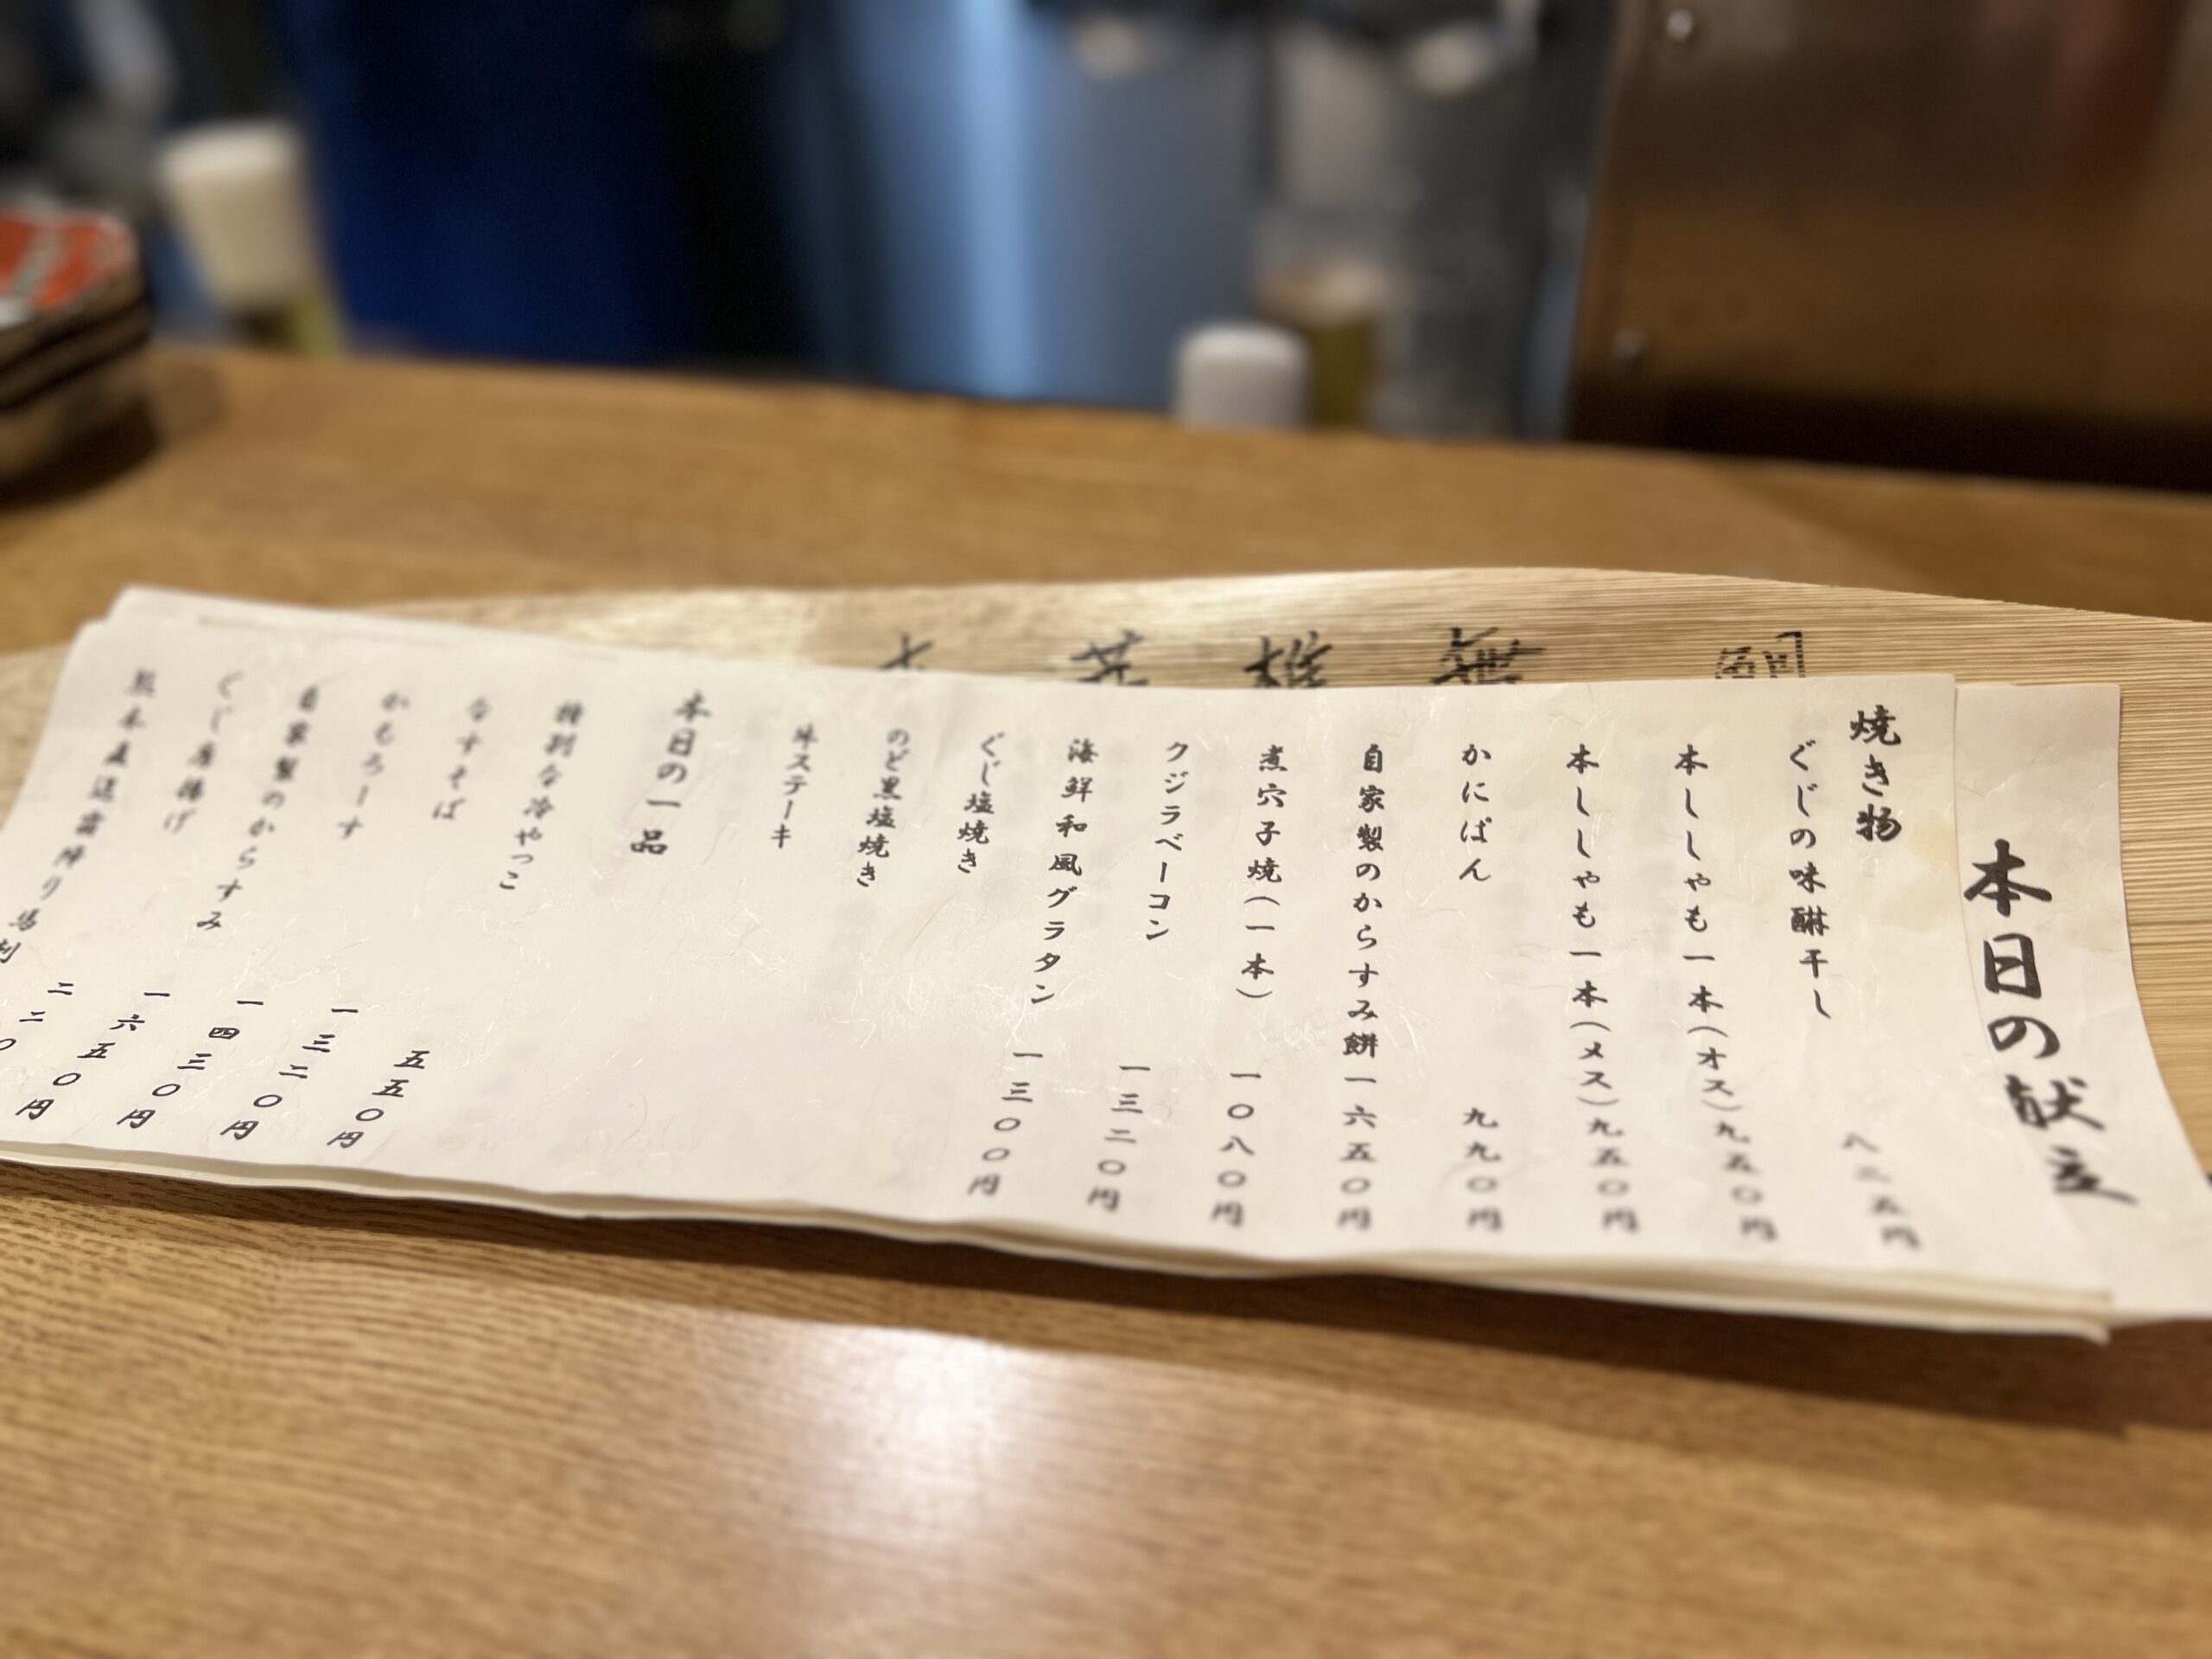 本日の献立
焼き物
ぐじの味醂干し 八二五円
本ししゃも一本(オス)九五〇円
本ししゃも一本(メス)九五〇円
かにぱん 九九〇円
自家製のからすみ餅一六五〇円
煮穴子焼(一本) 一〇八〇円
クジラベーコン 一三二〇円
海鮮和風グラタン 一三〇〇円
ぐじ塩焼き
のど黒塩焼き
牛ステーキ
本日の一品
特別な冷やっこ 五五〇円
なすそば 一三二〇円
かもろーす 一四三〇円
自家製のからすみ 一六五〇円
ぐじ唐揚げ 二二〇
熊本直送霜降り馬刺